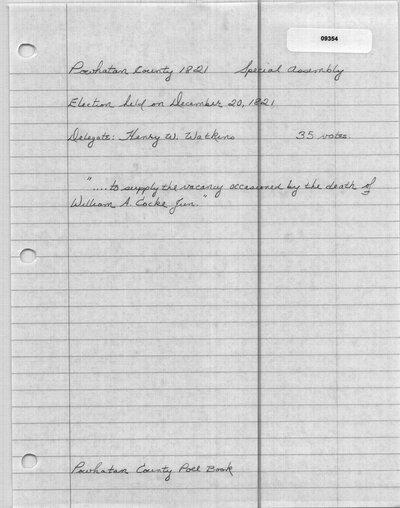 09354
Powhatan County 1821 Special Assembly
Election held on December 20, 1821
Delegate: Henry W. Watkins 35 votes
".... to supply the vacancy occasioned by the death of
William A. Cocke Jun."
Powhatan County Poll Book